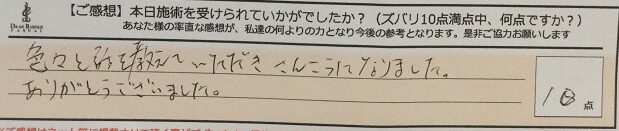 DEAR BARBER
CASUAL
【ご感想】本日施術を受けられていかがでしたか？（ズバリ10点満点中、何点ですか？）
あなた様の率直な感想が、私達の何よりの力となり今後の参考となります。是非ご協力お願いします
色々と 教えていただき さんこうになりました。
ありがとうございました。
10 点